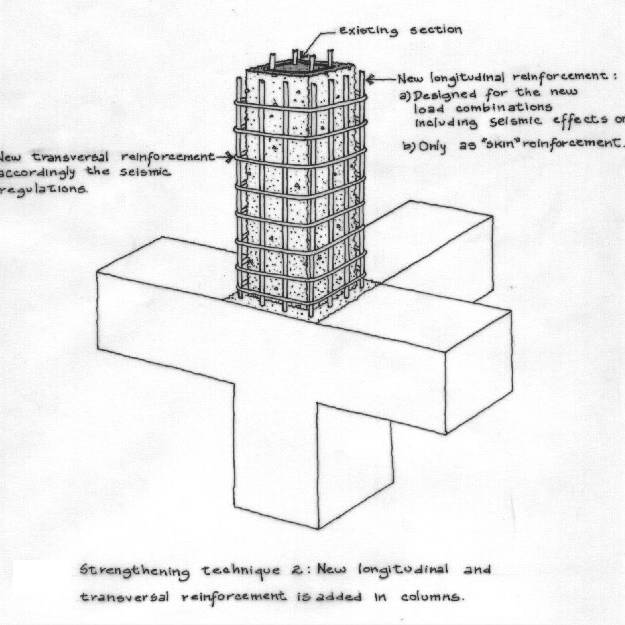 existing section
New longitudinal reinforcement:
a) Designed for the new
load combinations
including seismic effects or
b) Only as "skin" reinforcement.
New transversal reinforcement
accordingly the seismic
regulations.
Strengthening technique 2: New longitudinal and
transversal reinforcement is added in columns.